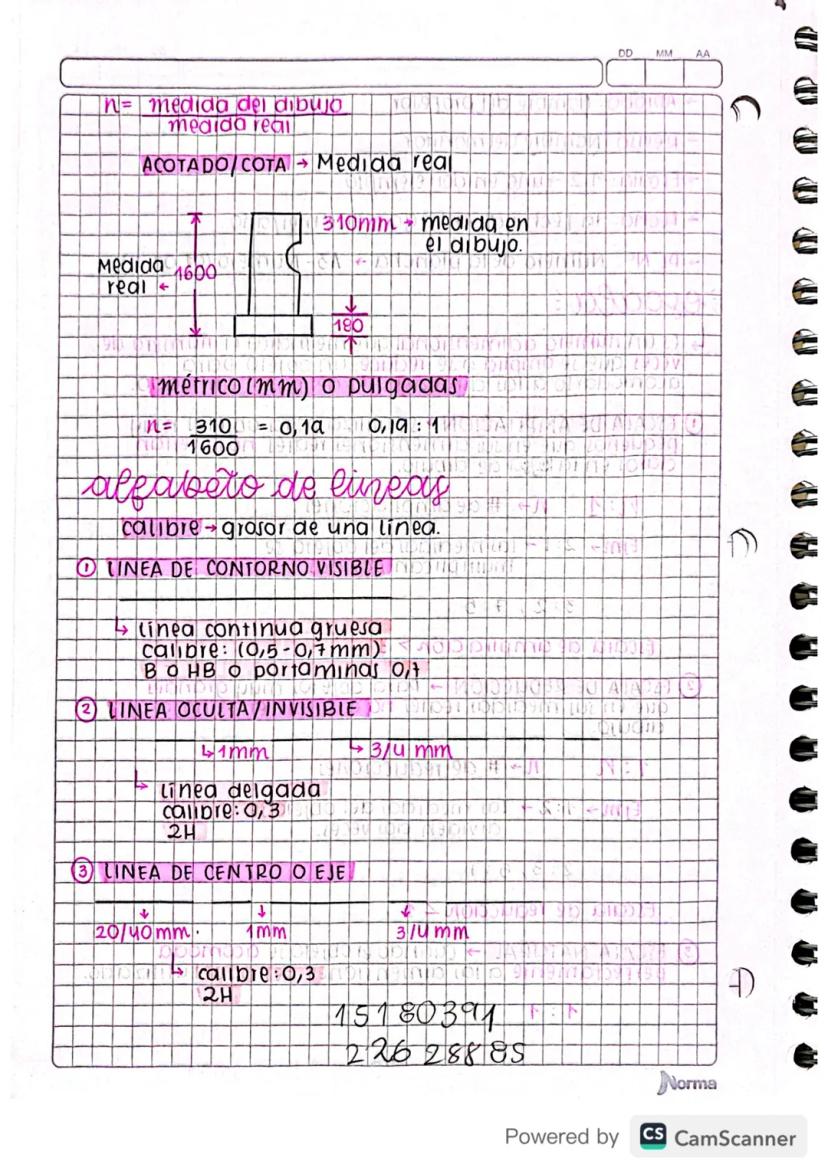 DD MM AA
n= medida del dibujo
medida real
ACOTADO/COTA → Medida real
310mm → medida en
el dibujo.
Medida
real ← 1600
180
métrico (mm) o pulgadas
n= 310 = 0,19 0,19 : 1
1600
alfabeto de lineas
calibre → grosor de una línea.
① LINEA DE CONTORNO VISIBLE
↳ línea continua gruesa
calibre: (0,5-0,7mm)
B o HB o portaminas 0,7
② LINEA OCULTA/INVISIBLE
↳ 1mm ↳ 3/4 mm
↳ línea delgada
calibre: 0,3
2H
③ LINEA DE CENTRO O EJE
20/40 mm. 1mm 3/4 mm
↳ calibre: 0,3
2H
15180391
22628885
Norma
Powered by CS CamScanner